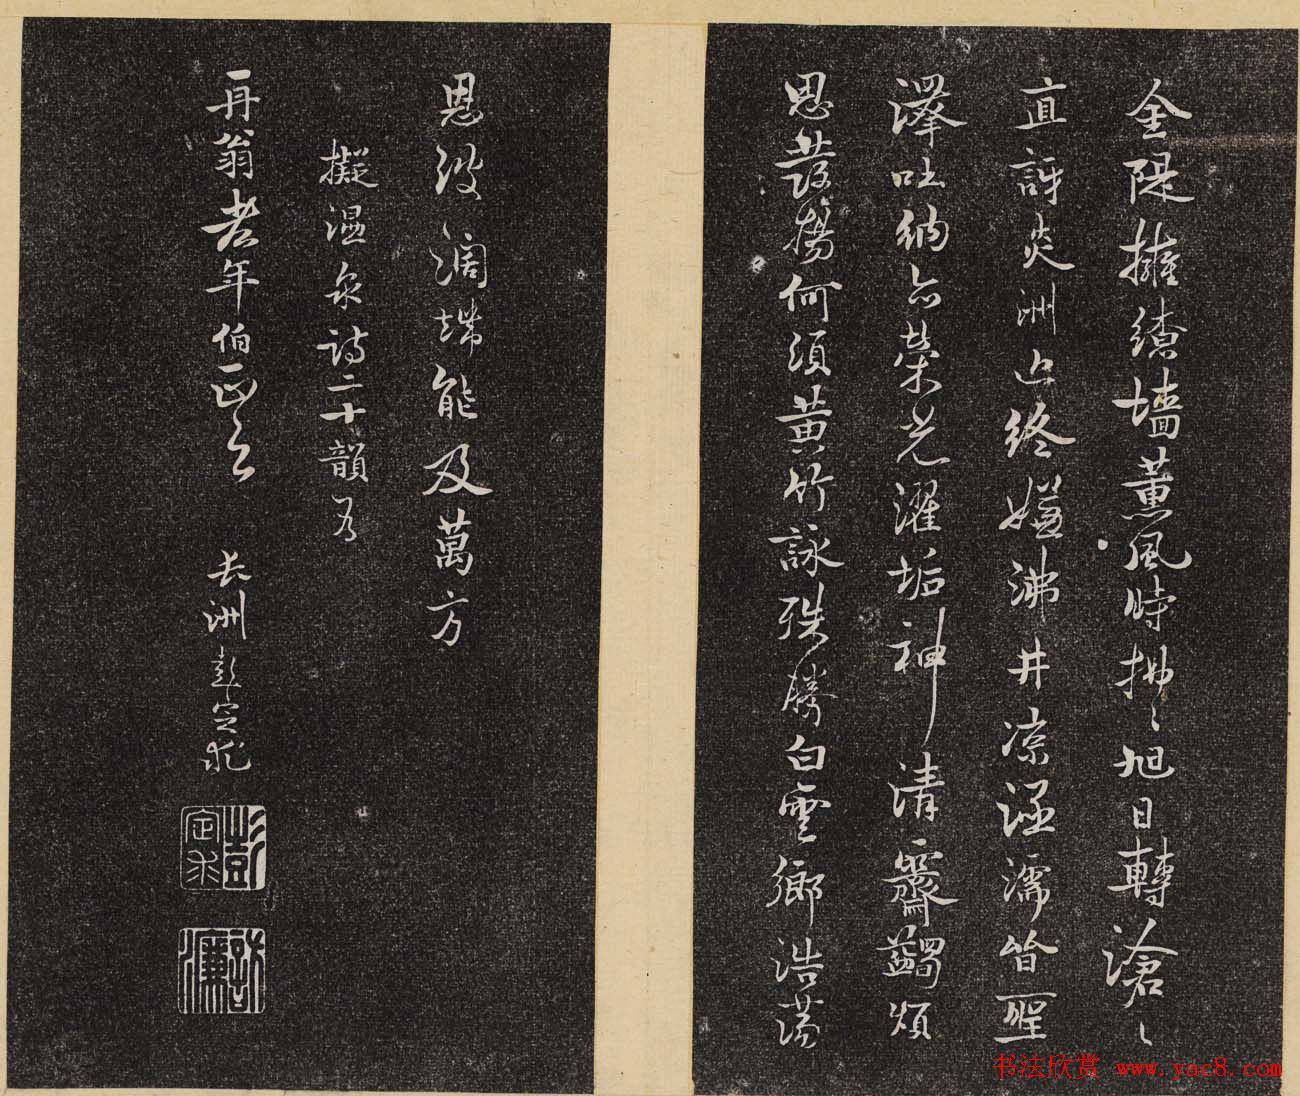 金隄擁繚墻薰風時拂〻旭日轉滄〻
直訝炎洲近終嫌沸井凉涵濡皆聖
澤吐納亦榮光濯垢神清齋蠲煩
思發揚何須黄竹詠殊勝白雲鄉浩蕩
恩波濶端能及萬方
擬温泉詩二十韻為
再翁老年伯正之
長洲彭定求
彭定求
訪濂
书法欣赏 www.yac8.com